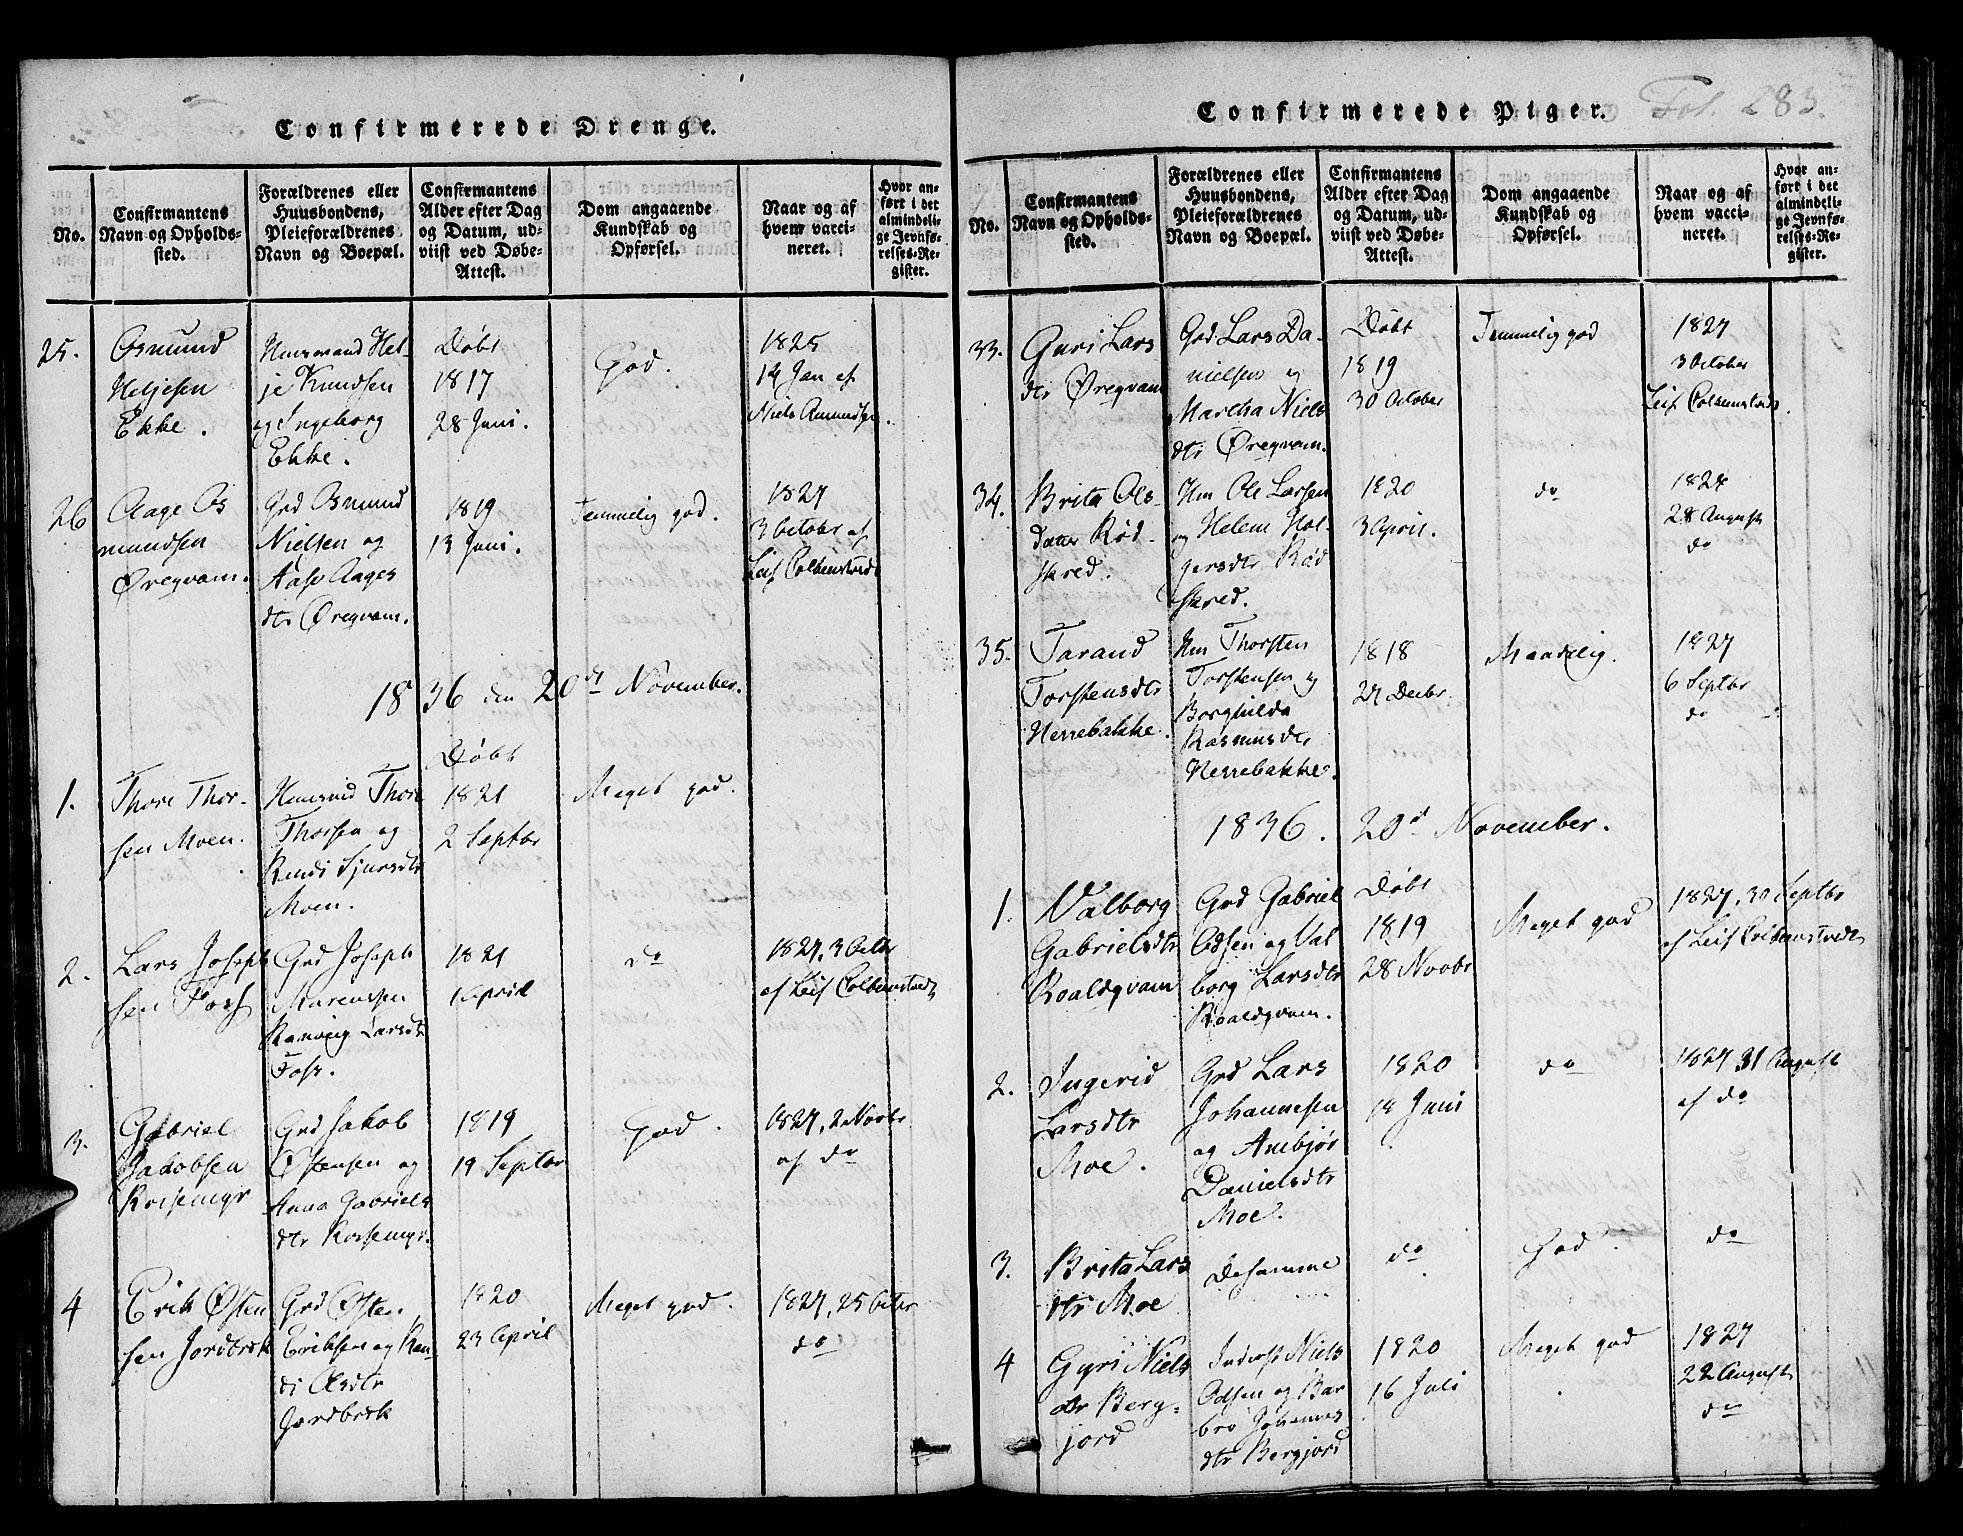 Confirmerede Drenge.
No.
Confirmantens
Navn og Opholds-
sted.
Forældrenes eller
Huusbondens,
Pleieforældrenes
Navn og Boepæl.
Confirmantens
Alder efter Dag
og Datum, ud-
viist ved Døbe-
Attest.
Dom angaaende
Kundskab og
Opførsel.
Naar og af
hvem vacci-
neret.
Hvor an-
ført i det
almindeli-
ge Jevnfø-
relses-Re-
gister.
25.
Osmund
Heljesen
Ekke.
Huusmand Hel-
je Knudsen
og Ingeborg
Ekke.
Døbt
1817
28 Juni.
God.
1825
14 Jan af
Niels Amundsen.
26
Aage Os
mundsen
Øregvam.
Grd Osmund
Nielsen og
Aase Aages
dtr Øregvam.
1819
13 Juni.
Temmelig god.
1827
3 Octobr af
Leif Colbenstvedt
1836 den 20de November.
1.
Thore Thor-
sen Moen.
Huusmd Thore
Thorsen og
Randi Sjursdtr
Moen.
Døbt
1821
2 Septbr
Meget god.
2.
Lars Joseph
sen Foss
Grd Joseph
Ranveig Larsdtr
Foss.
1821
1 April
do
1827, 3 Octbr
af Leif Colbenstvedt
3.
Gabriel
Jacobsen
Rossemyr
Grd Jakob
Østensen og
Anna Gabriels
dtr Rossemyr.
1819
19 Septbr
God.
1827, 2 Novbr
af do
4
Erik Østen
sen Jordbrek
Grd Østen
Eriksen og Ran-
di Olsdtr
Jordbrek
1820
23 April
Meget god.
1827, 25 Octbr
do
Confirmerede Piger.
Fol. 283.
No.
Confirmantens
Navn og Opholds-
sted.
Forældrenes eller
Huusbondens,
Pleieforældrenes
Navn og Boepæl.
Confirmantens
Alder efter Dag
og Datum, ud-
viist ved Døbe-
Attest.
Dom angaaende
Kundskab og
Opførsel.
Naar og af
hvem vacci-
neret.
Hvor an-
ført i det
almindeli-
ge Jevnfø-
relses-Re-
gister.
33.
Guri Lars
dtr Øregvam
Grd Lars Da-
nielsen og
Martha Niels
dtr Øregvam.
Døbt
1819
30 October
Temmelig god
1827
3 October
Leif Colbenstvedt.
34.
Brita Ols-
datter Rød-
skred.
Hm Ole Larsen
og Helene Hol-
gersdtr Rød
skred.
1820
3 April.
do
1828
28 August
do
35.
Tarand
Torstensdtr
Herrebakke.
Hm Thorsten
Torstensen og
Borghilda
Rasmusdtr
Herrebakke.
1818
27 Decbr.
Maadelig.
1827
6 Septbr
do
1836. 20d November.
1.
Valborg
Gabrielsdtr
Roaldqvam
Grd Gabriel
Odsen og Val
borg Larsdtr
Roaldqvam.
Døbt
1819
28 Novbr
Meget god
1827, 30 Septbr
af Leif Colbenstvedt
2.
Ingerid
Larsdtr
Moe.
Grd Lars
Johannesen
og Anbjør
Danielsdtr
Moe.
1820
18 Juni
do
1827 31 August
af do
3.
Brita Lars
dtr Moe
De samme
do
God.
do
4
Gyri Niels
dtr Berg-
jord
Inderst Niels
Odsen og Bar
bro Johannes
dtr Bergjord
1820
16 Juli
Meget god
1827
22 August
do